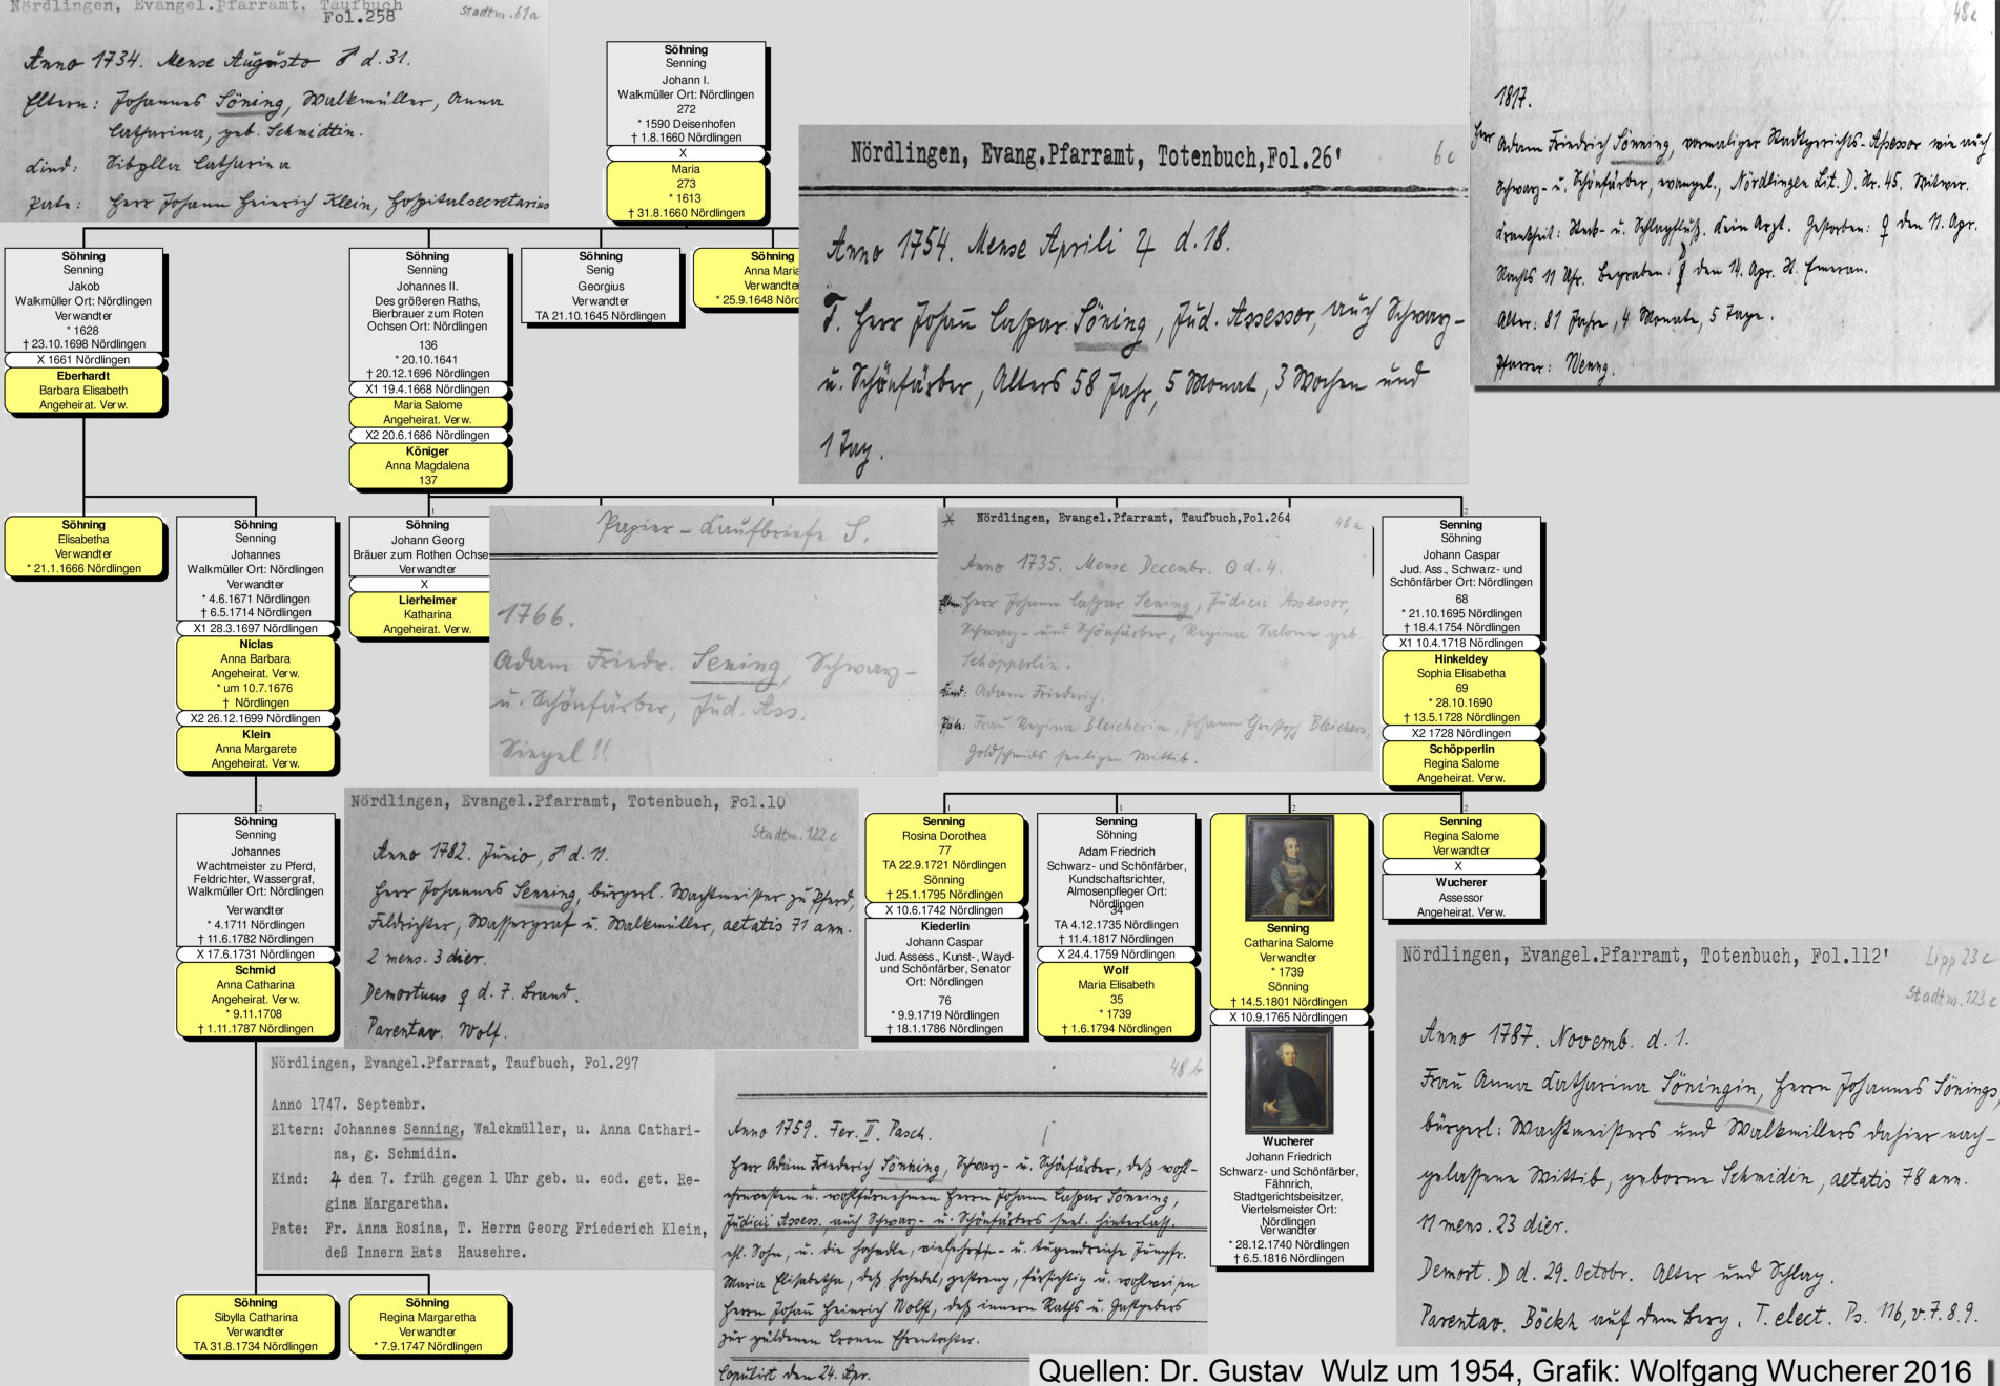 Nördlingen, Evangel.Pfarramt, Taufbuch
Fol.258
Stadtm. 81a
Anno 1734. Mense Augusto ♂ d. 31.
Eltern: Johannes Söning, Walkmüller, Anna
Catharina, geb. Schmidtin.
Kind: Sibylla Catharina
Pate: Herr Johann Heinrich Klein, Hospitalsecretarius
Söhning
Senning
Johann I.
Walkmüller Ort: Nördlingen
272
* 1590 Deisenhofen
† 1.8.1660 Nördlingen
X
Maria
273
* 1613
† 31.8.1660 Nördlingen
Nördlingen, Evang.Pfarramt, Totenbuch,Fol.26'
6c
Anno 1754. Mense Aprili ♃ d. 18.
T. Herr Johann Caspar Söning, Jud. Assessor, auch Schwarz-
u. Schönfärber, Alters 58 Jahr, 5 Monat, 3 Wochen und
1 Tag.
48c
1817.
Herr Adam Friedrich Sönning, vormaliger Stadtgerichts-Assessor wie auch
Schwarz- u. Schönfärber, evangel., Nördlingen Lit. D. Nr. 45. Witwer.
Krankheit: Steck- u. Schlagfluß. Kein Arzt. Gestorben: ♀ den 11. Apr.
Nachts 11 Uhr. Begraben: den 14. Apr. St. Emeran.
Alter: 81 Jahre, 4 Monate, 5 Tage.
Pfarrer: Wenng.
Söhning
Senning
Jakob
Walkmüller Ort: Nördlingen
Verwandter
* 1628
† 23.10.1698 Nördlingen
X 1661 Nördlingen
Eberhardt
Barbara Elisabeth
Angeheirat. Verw.
Söhning
Senning
Johannes II.
Des größeren Raths,
Bierbrauer zum Roten
Ochsen Ort: Nördlingen
136
* 20.10.1641
† 20.12.1696 Nördlingen
X1 19.4.1668 Nördlingen
Maria Salome
Angeheirat. Verw.
X2 20.6.1686 Nördlingen
Königer
Anna Magdalena
137
Söhning
Senig
Georgius
Verwandter
TA 21.10.1645 Nördlingen
Söhning
Anna Maria
Verwandte
* 25.9.1648 Nörd
Söhning
Elisabetha
Verwandter
* 21.1.1666 Nördlingen
Söhning
Senning
Johannes
Walkmüller Ort: Nördlingen
Verwandter
* 4.6.1671 Nördlingen
† 6.5.1714 Nördlingen
X1 28.3.1697 Nördlingen
Niclas
Anna Barbara
Angeheirat. Verw.
* um 10.7.1676
† Nördlingen
X2 26.12.1699 Nördlingen
Klein
Anna Margarete
Angeheirat. Verw.
1
Söhning
Johann Georg
Bräuer zum Rothen Ochse
Verwandter
X
Lierheimer
Katharina
Angeheirat. Verw.
Papier-Kaufbriefe S.
1766.
Adam Friedr. Sening, Schwarz-
u. Schönfärber, Jud. Ass.
Siegel!!
* Nördlingen, Evangel.Pfarramt, Taufbuch,Fol.264
48a
Anno 1735. Mense Decembr. ⊙ d. 4.
Eltern: Herr Johann Caspar Sening, Judicii Assessor,
Schwarz- und Schönfärber, Regina Salome geb.
Schöpperlin.
Kind: Adam Friederich.
Pate: Frau Regina Bleicherin, Johann Christoph Bleichers,
Goldschmids seeligen Wittib.
2
Senning
Söhning
Johann Caspar
Jud. Ass., Schwarz- und
Schönfärber Ort: Nördlingen
68
* 21.10.1695 Nördlingen
† 18.4.1754 Nördlingen
X1 10.4.1718 Nördlingen
Hinkeldey
Sophia Elisabetha
69
* 28.10.1690
† 13.5.1728 Nördlingen
X2 1728 Nördlingen
Schöpperlin
Regina Salome
Angeheirat. Verw.
2
Söhning
Senning
Johannes
Wachtmeister zu Pferd,
Feldrichter, Wassergraf,
Walkmüller Ort: Nördlingen
Verwandter
* 4.1711 Nördlingen
† 11.6.1782 Nördlingen
X 17.6.1731 Nördlingen
Schmid
Anna Catharina
Angeheirat. Verw.
* 9.11.1708
† 1.11.1787 Nördlingen
Nördlingen, Evangel.Pfarramt, Totenbuch, Fol.10
Stadtm. 122 c
Anno 1782. Junio, ♂ d. 11.
Herr Johannes Senning, bürgerl. Wachtmeister zu Pferd,
Feldrichter, Wassergraf u. Walkmüller, aetatis 71 ann.
2 mens. 3 dier.
Demortuus ♀ d. 7. Brand.
Parentav. Wolf.
1
Senning
Rosina Dorothea
77
TA 22.9.1721 Nördlingen
Sönning
† 25.1.1795 Nördlingen
X 10.6.1742 Nördlingen
Kiederlin
Johann Caspar
Jud. Assess., Kunst-, Wayd-
und Schönfärber, Senator
Ort: Nördlingen
76
* 9.9.1719 Nördlingen
† 18.1.1786 Nördlingen
1
Senning
Söhning
Adam Friedrich
Schwarz- und Schönfärber,
Kundschaftsrichter,
Almosenpfleger Ort:
Nördlingen
34
TA 4.12.1735 Nördlingen
† 11.4.1817 Nördlingen
X 24.4.1759 Nördlingen
Wolf
Maria Elisabeth
35
* 1739
† 1.6.1794 Nördlingen
2
Senning
Catharina Salome
Verwandter
* 1739
Sönning
† 14.5.1801 Nördlingen
X 10.9.1765 Nördlingen
Wucherer
Johann Friedrich
Schwarz- und Schönfärber,
Fähnrich,
Stadtgerichtsbeisitzer,
Viertelsmeister Ort:
Nördlingen
Verwandter
* 28.12.1740 Nördlingen
† 6.5.1816 Nördlingen
2
Senning
Regina Salome
Verwandter
X
Wucherer
Assessor
Angeheirat. Verw.
Nördlingen, Evangel.Pfarramt, Taufbuch, Fol.297
Anno 1747. Septembr.
Eltern: Johannes Senning, Walckmüller, u. Anna Cathari-
na, g. Schmidin.
Kind: ♃ den 7. früh gegen 1 Uhr geb. u. eod. get. Re-
gina Margaretha.
Pate: Fr. Anna Rosina, T. Herrn Georg Friederich Klein,
deß Innern Rats Hausehre.
48 b
Anno 1759. Fer. II. Pasch.
Herr Adam Friederich Sönning, Schwarz- u. Schönfärber, deß wohl-
ehrenvesten u. wohlfürnehmen Herrn Johann Caspar Sönning,
Judicii Assess. auch Schwarz- u. Schönfärbers seel. hinterlass.
ehl. Sohn, u. die hochedle, vielehrs- u. tugendreiche Jungfr.
Maria Elisabetha, deß hochedel, gestreng, fürsichtig u. wohlweisen
Herrn Johann Heinrich Wolff, deß innern Raths u. Gastgebers
zur güldenen Cronen Ehrentochter.
Copulirt den 24. Apr.
Nördlingen, Evangel.Pfarramt, Totenbuch, Fol.112'
Lipp 23 c
Stadtm. 123 c
Anno 1787. Novemb. d. 1.
Frau Anna Catharina Söningin, Herrn Johannes Sönings,
bürgerl: Wachtmeisters und Walkmillers dahier nach-
gelassene Wittib, geborne Schmidin, aetatis 78 ann.
11 mens. 23 dier.
Demort. ☽ d. 29. Octobr. Alter und Schlag.
Parentav. Böckh auf dem Berg. T. elect. Ps. 116, v. 7. 8. 9.
Söhning
Sibylla Catharina
Verwandter
TA 31.8.1734 Nördlingen
Söhning
Regina Margaretha
Verwandter
* 7.9.1747 Nördlingen
Quellen: Dr. Gustav Wulz um 1954, Grafik: Wolfgang Wucherer 2016